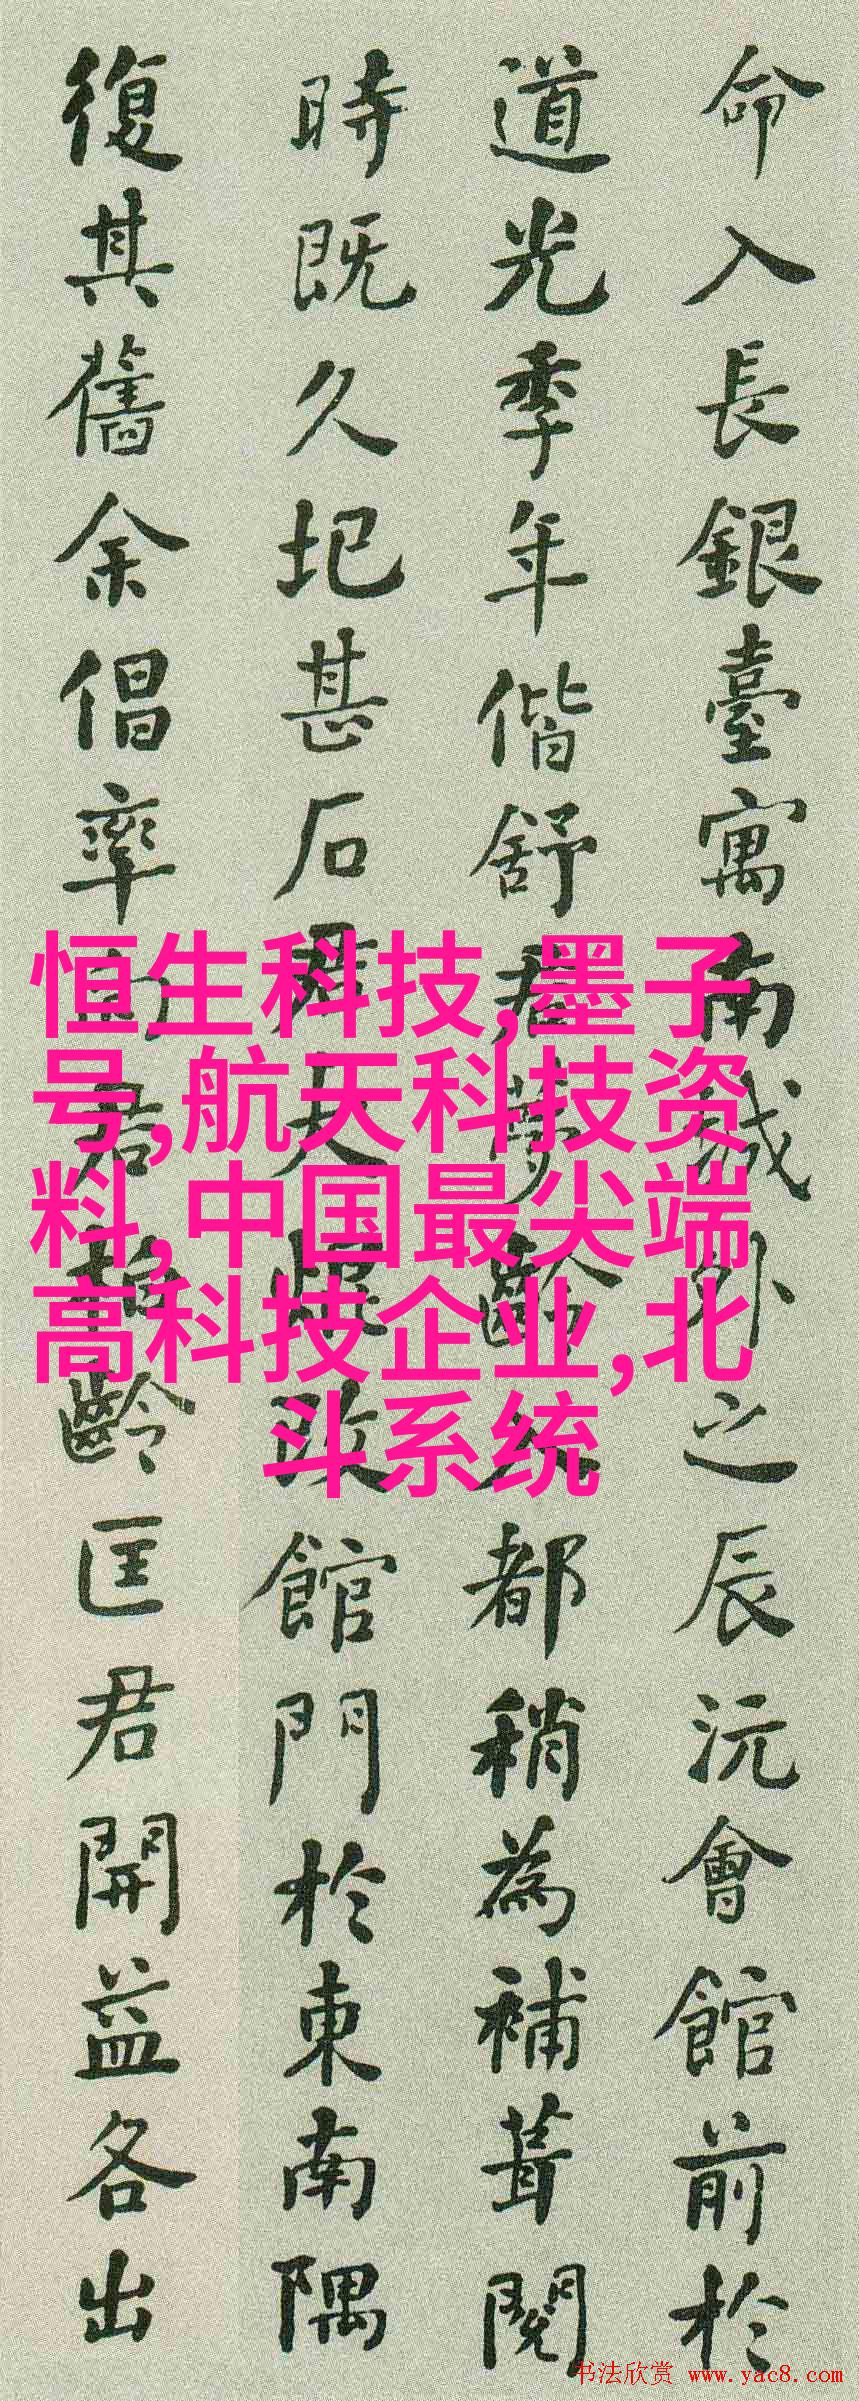 命入長銀臺寓南城外之辰沅會館前於
道光季年偕舒君夢齡入都稍為補葺閱
時既久圮甚石君大改館門於東南隅
復其舊余倡率君齡匡君開益各出
恒生科技,墨子
号,航天科技资
料,中国最尖端
高科技企业,北
斗系统
书法欣赏 www.yac8.com